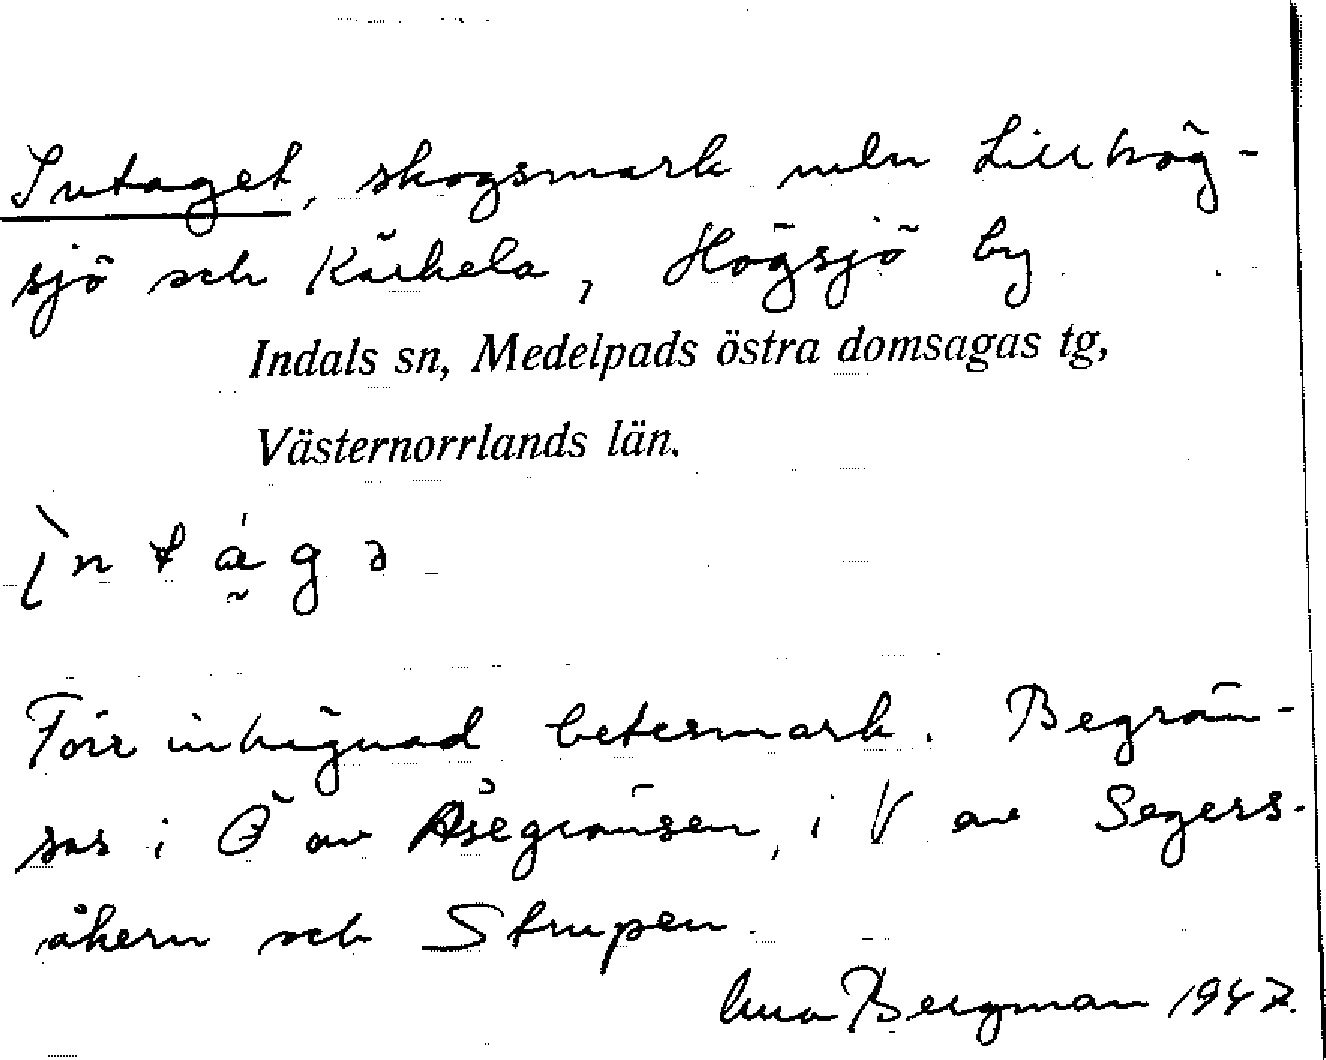 Intaget, skogsmark mln Lillhög-
sjö och Kärkela, Högsjö by
Indals sn, Medelpads östra domsagas tg,
Västernorrlands län.
ìntágə
Förr inhägnad betesmark. Begrän-
sas i Ö av Åsegränsen, i V av Segers-
åkern och Strupen.
Bergman 1947.